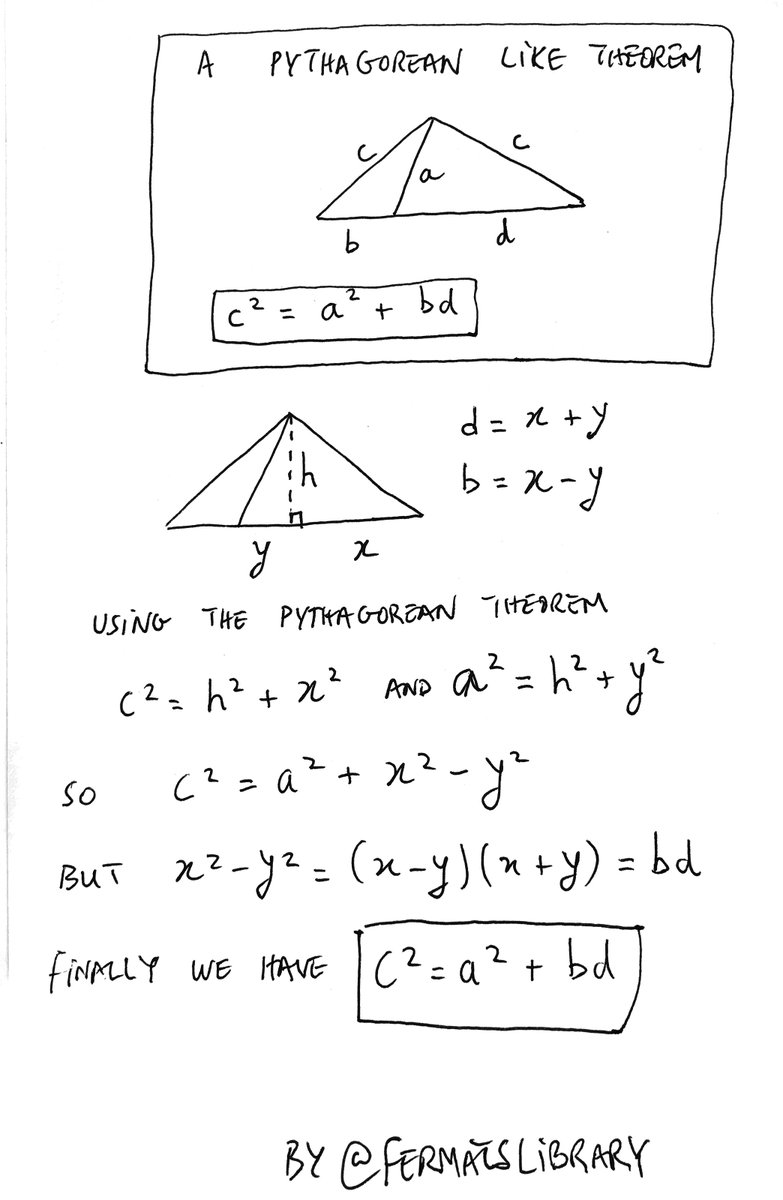 A PYTHAGOREAN LIKE THEOREM
c c
a
b d
c² = a² + bd
d = x + y
h
b = x - y
y x
USING THE PYTHAGOREAN THEOREM
c² = h² + x² AND a² = h² + y²
SO c² = a² + x² - y²
BUT x² - y² = (x - y)(x + y) = bd
FINALLY WE HAVE c² = a² + bd
BY @FERMATSLIBRARY